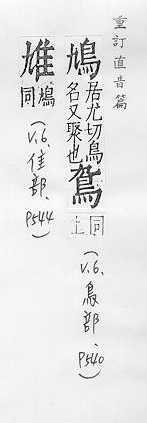 重訂直音篇
鳩居尤切鳥
名又聚也𪀚同上
(V.6.鳥部、P540)
雄鳩同
(V.6.隹部、P544)